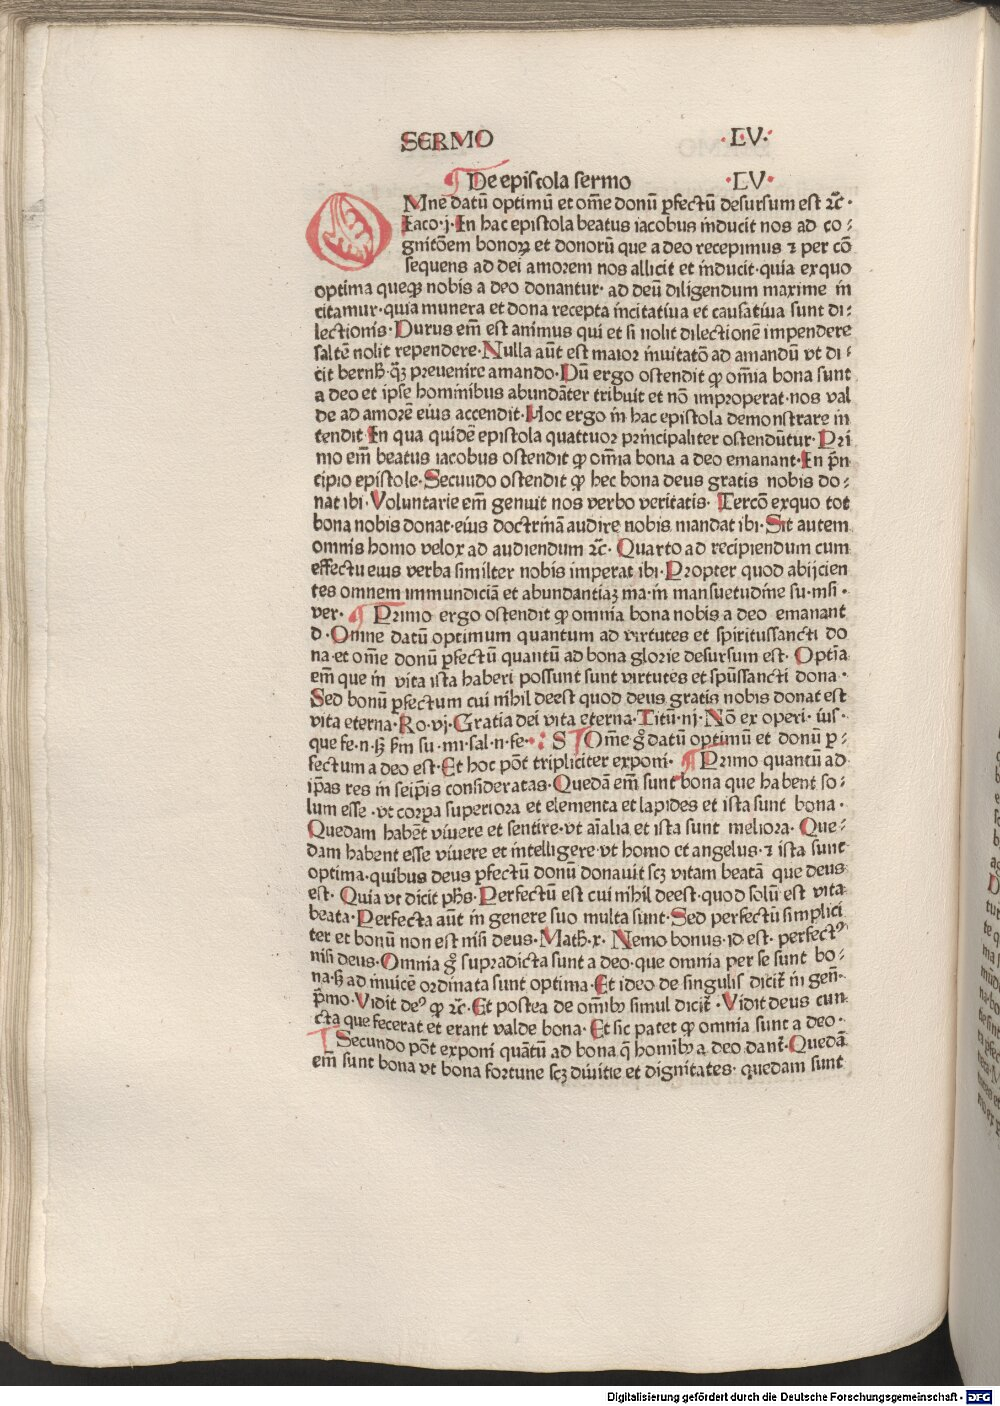 SERMO ·LV·
De epistola sermo ·LV·
OMne datū optimū et om̄e donū ꝑfectū desursum est ⁊c̄·
Iaco·j·In hac epistola beatus iacobus inducit nos ad co⸗
gnitōem bonoꝝ et donorū que a deo recepimus ⁊ per cō
sequens ad dei amorem nos allicit et inducit·quia exquo
optima queqꝫ nobis a deo donantur· ad deū diligendum maxime in
citamur·quia munera et dona recepta incitatiua et causatiua sunt di⸗
lectionis·Durus em̄ est animus qui et si nolit dilectionē impendere
saltē nolit rependere·Nulla aūt est maior inuitatō ad amandū vt di⸗
cit bernh̄·qꝫ preuenire amando·Dū ergo ostendit ꝙ om̄ia bona sunt
a deo et ipse hominibus abundāter tribuit et nō improperat·nos val
de ad amorē eius accendit·Hoc ergo in hac epistola demonstrare in
tendit·In qua quidē epistola quattuor principaliter ostendūtur·Pri
mo em̄ beatus iacobus ostendit ꝙ om̄ia bona a deo emanant·In p̄n
cipio epistole·Secundo ostendit ꝙ hec bona deus gratis nobis do⸗
nat ibi·Voluntarie em̄ genuit nos verbo veritatis·Tercō exquo tot
bona nobis donat·eius doctrinā audire nobis mandat ibi·Sit autem
omnis homo velox ad audiendum ⁊c̄·Quarto ad recipiendum cum
effectu eius verba similter nobis imperat ibi·Propter quod abijcien
tes omnem immundiciā et abundantiaꝫ ma·in mansuetudīne su·insi·
ver· Primo ergo ostendit ꝙ omnia bona nobis a deo emanant
d·Omne datū optimum quantum ad virtutes et spiritussancti do
na·et om̄e donū ꝑfectū quantū ad bona glorie desursum est·Optīa
em̄ que in vita ista haberi possunt sunt virtutes et spūssancti dona·
Sed bonū ꝑfectum cui nihil deest quod deus gratis nobis donat est
vita eterna·Ro·vj·Gratia dei vita eterna·Titū·iij·Nō ex operi·ius·
que fe·n·sꝫ s̄m su·mi·sal·n·fe·: S Om̄e g̊ datū optimū et donū ꝑ⸗
fectum a deo est·Et hoc pōt tripliciter exponi· Primo quantū ad
ip̄as res in seip̄is consideratas·Quedā em̄ sunt bona que habent so⸗
lum esse·vt corꝑa superiora et elementa et lapides et ista sunt bona·
Quedam habēt viuere et sentire·vt aīalia et ista sunt meliora·Que⸗
dam habent esse viuere et intelligere·vt homo et angelus·⁊ ista sunt
optima·quibus deus ꝑfectū donū donauit scꝫ vitam beatā que deus
est·Quia vt dicit ph̄s·Perfectū est cui nihil deest·quod solū est vita
beata·Perfecta aūt in genere suo multa sunt·Sed perfectū simplici
ter et bonū non est nisi deus·Math̄·x·Nemo bonus·id est·perfectꝰ
nisi deus·Omnia g̊ supradicta sunt a deo·que omnia per se sunt bo⸗
na·sꝫ ad inuicē ordinata sunt optima·Et ideo de singulis dicit̄ in gen̄·
p̄mo·Vidit deꝰ ꝙ ⁊c̄·Et postea de om̄ibꝫ simul dicit̄·Vidit deus cun
cta que fecerat et erant valde bona·Et sic patet ꝙ omnia sunt a deo·
Secundo pōt exponi quātū ad bona q̄ homībꝫ a deo dant̄·Quedā
em̄ sunt bona vt bona fortune scꝫ diuitie et dignitates·quedam sunt
Digitalisierung gefördert durch die Deutsche Forschungsgemeinschaft - DFG